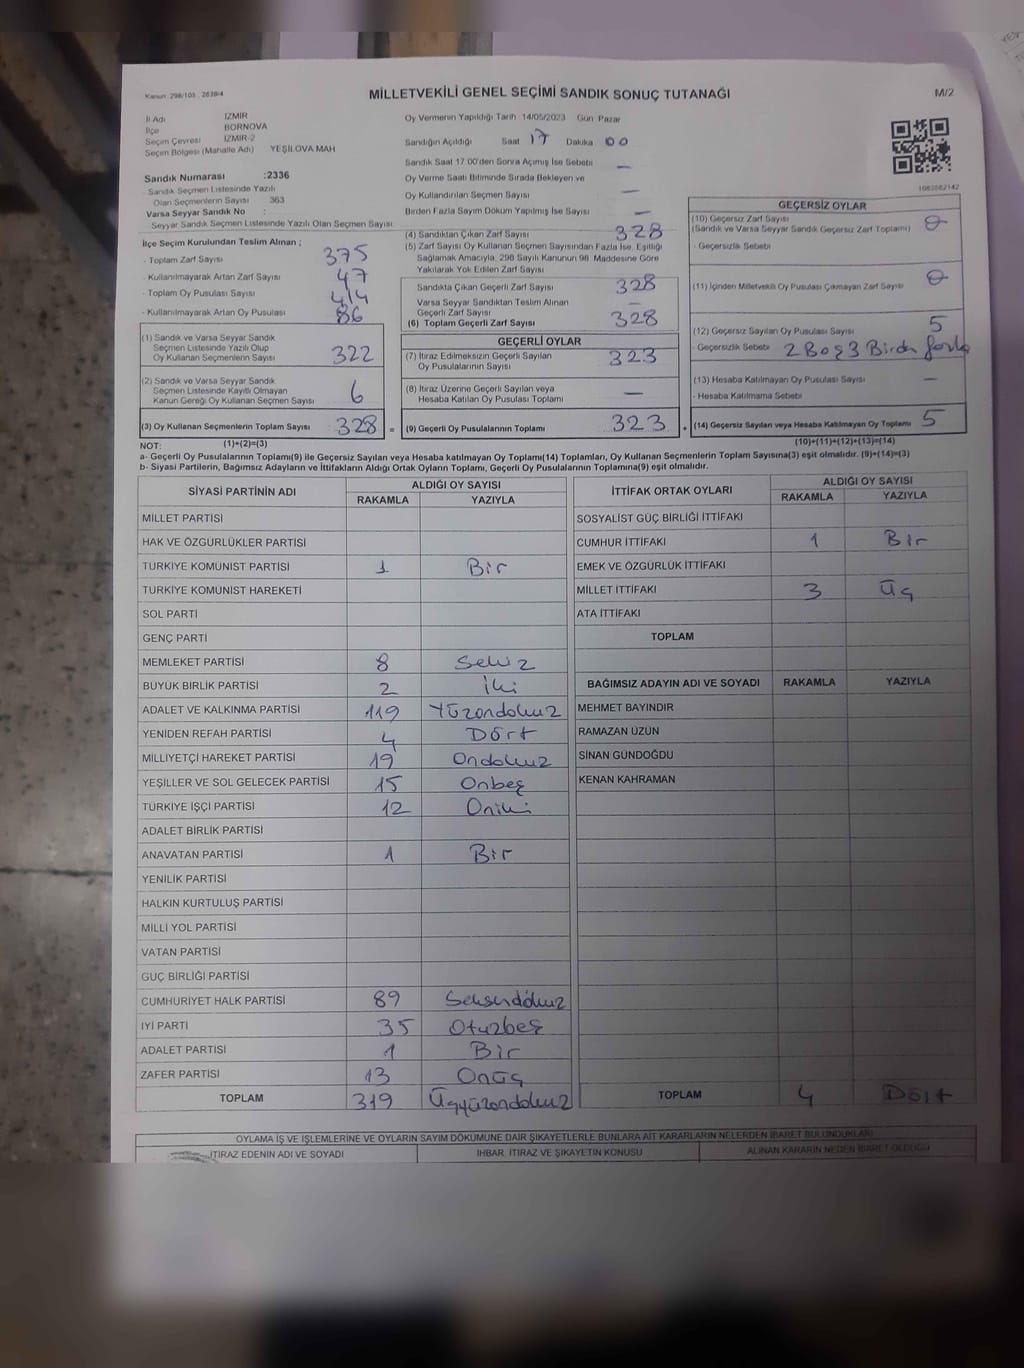 Kanun: 298/105 : 2839/4
MİLLETVEKİLİ GENEL SEÇİMİ SANDIK SONUÇ TUTANAĞI
M/2
İl Adı İZMİR
İlçe BORNOVA
Seçim Çevresi İZMİR-2
Seçim Bölgesi (Mahalle Adı) YEŞİLOVA MAH
Sandık Numarası :2336
Sandık Seçmen Listesinde Yazılı
Olan Seçmenlerin Sayısı 363
Varsa Seyyar Sandık No :
Seyyar Sandık Seçmen Listesinde Yazılı Olan Seçmen Sayısı
İlçe Seçim Kurulundan Teslim Alınan ;
- Toplam Zarf Sayısı 375
- Kullanılmayarak Artan Zarf Sayısı 47
- Toplam Oy Pusulası Sayısı 414
- Kullanılmayarak Artan Oy Pusulası 86
(1) Sandık ve Varsa Seyyar Sandık
Seçmen Listesinde Yazılı Olup
Oy Kullanan Seçmenlerin Sayısı 322
(2) Sandık ve Varsa Seyyar Sandık
Seçmen Listesinde Kayıtlı Olmayan
Kanun Gereği Oy Kullanan Seçmen Sayısı 6
(3) Oy Kullanan Seçmenlerin Toplam Sayısı 328 =
(1)+(2)=(3)
Oy Vermenin Yapıldığı Tarih 14/05/2023 Gün Pazar
Sandığın Açıldığı Saat 17 Dakika 00
Sandık Saat 17 00'den Sonra Açımış İse Sebebi —
Oy Verme Saati Bitiminde Sırada Bekleyen ve
Oy Kullandırılan Seçmen Sayısı —
Birden Fazla Sayım Döküm Yapılmış İse Sayısı —
(4) Sandıktan Çıkan Zarf Sayısı 328
(5) Zarf Sayısı Oy Kullanan Seçmen Sayısından Fazla İse, Eşitliği
Sağlamak Amacıyla, 298 Sayılı Kanunun 98. Maddesine Göre
Yakılarak Yok Edilen Zarf Sayısı
Sandıkta Çıkan Geçerli Zarf Sayısı 328
Varsa Seyyar Sandıktan Teslim Alınan
Geçerli Zarf Sayısı —
(6) Toplam Geçerli Zarf Sayısı 328
GEÇERLİ OYLAR
(7) İtiraz Edilmeksizin Geçerli Sayılan
Oy Pusulalarının Sayısı 323
(8) İtiraz Üzerine Geçerli Sayılan veya
Hesaba Katılan Oy Pusulası Toplamı —
(9) Geçerli Oy Pusulalarının Toplamı 323 +
1083882142
GEÇERSİZ OYLAR
(10) Geçersiz Zarf Sayısı
(Sandık ve Varsa Seyyar Sandık Geçersiz Zarf Toplamı) 0
- Geçersizlik Sebebi
(11) İçinden Milletvekili Oy Pusulası Çıkmayan Zarf Sayısı 0
(12) Geçersiz Sayılan Oy Pusulası Sayısı 5
- Geçersizlik Sebebi 2 Boş 3 Birden fazla
(13) Hesaba Katılmayan Oy Pusulası Sayısı —
- Hesaba Katılmama Sebebi
(14) Geçersiz Sayılan veya Hesaba Katılmayan Oy Toplamı 5
(10)+(11)+(12)+(13)=(14)
NOT:
a- Geçerli Oy Pusulalarının Toplamı(9) ile Geçersiz Sayılan veya Hesaba katılmayan Oy Toplamı(14) Toplamları, Oy Kullanan Seçmenlerin Toplam Sayısına(3) eşit olmalıdır. (9)+(14)=(3)
b- Siyasi Partilerin, Bağımsız Adayların ve İttifakların Aldığı Ortak Oyların Toplamı, Geçerli Oy Pusulalarının Toplamına(9) eşit olmalıdır.
SİYASİ PARTİNİN ADI ALDIĞI OY SAYISI
RAKAMLA YAZIYLA
MİLLET PARTİSİ
HAK VE ÖZGÜRLÜKLER PARTİSİ
TÜRKİYE KOMÜNİST PARTİSİ 1 Bir
TÜRKİYE KOMÜNİST HAREKETİ
SOL PARTİ
GENÇ PARTİ
MEMLEKET PARTİSİ 8 Sekiz
BÜYÜK BİRLİK PARTİSİ 2 İki
ADALET VE KALKINMA PARTİSİ 119 Yüzondokuz
YENİDEN REFAH PARTİSİ 4 Dört
MİLLİYETÇİ HAREKET PARTİSİ 19 Ondokuz
YEŞİLLER VE SOL GELECEK PARTİSİ 15 Onbeş
TÜRKİYE İŞÇİ PARTİSİ 12 Oniki
ADALET BİRLİK PARTİSİ
ANAVATAN PARTİSİ 1 Bir
YENİLİK PARTİSİ
HALKIN KURTULUŞ PARTİSİ
MİLLİ YOL PARTİSİ
VATAN PARTİSİ
GÜÇ BİRLİĞİ PARTİSİ
CUMHURİYET HALK PARTİSİ 89 Seksendokuz
İYİ PARTİ 35 Otuzbeş
ADALET PARTİSİ 1 Bir
ZAFER PARTİSİ 13 Onüç
TOPLAM 319 Üçyüzondokuz
İTTİFAK ORTAK OYLARI ALDIĞI OY SAYISI
RAKAMLA YAZIYLA
SOSYALİST GÜÇ BİRLİĞİ İTTİFAKI
CUMHUR İTTİFAKI 1 Bir
EMEK VE ÖZGÜRLÜK İTTİFAKI
MİLLET İTTİFAKI 3 Üç
ATA İTTİFAKI
TOPLAM
BAĞIMSIZ ADAYIN ADI VE SOYADI RAKAMLA YAZIYLA
MEHMET BAYINDIR
RAMAZAN UZUN
SİNAN GÜNDOĞDU
KENAN KAHRAMAN
TOPLAM 4 Dört
OYLAMA İŞ VE İŞLEMLERİNE VE OYLARIN SAYIM DÖKÜMÜNE DAİR ŞİKAYETLERLE BUNLARA AİT KARARLARIN NELERDEN İBARET BULUNDUKLARI
İTİRAZ EDENİN ADI VE SOYADI İHBAR, İTİRAZ VE ŞİKAYETİN KONUSU ALINAN KARARIN NEDEN İBARET OLDUĞU